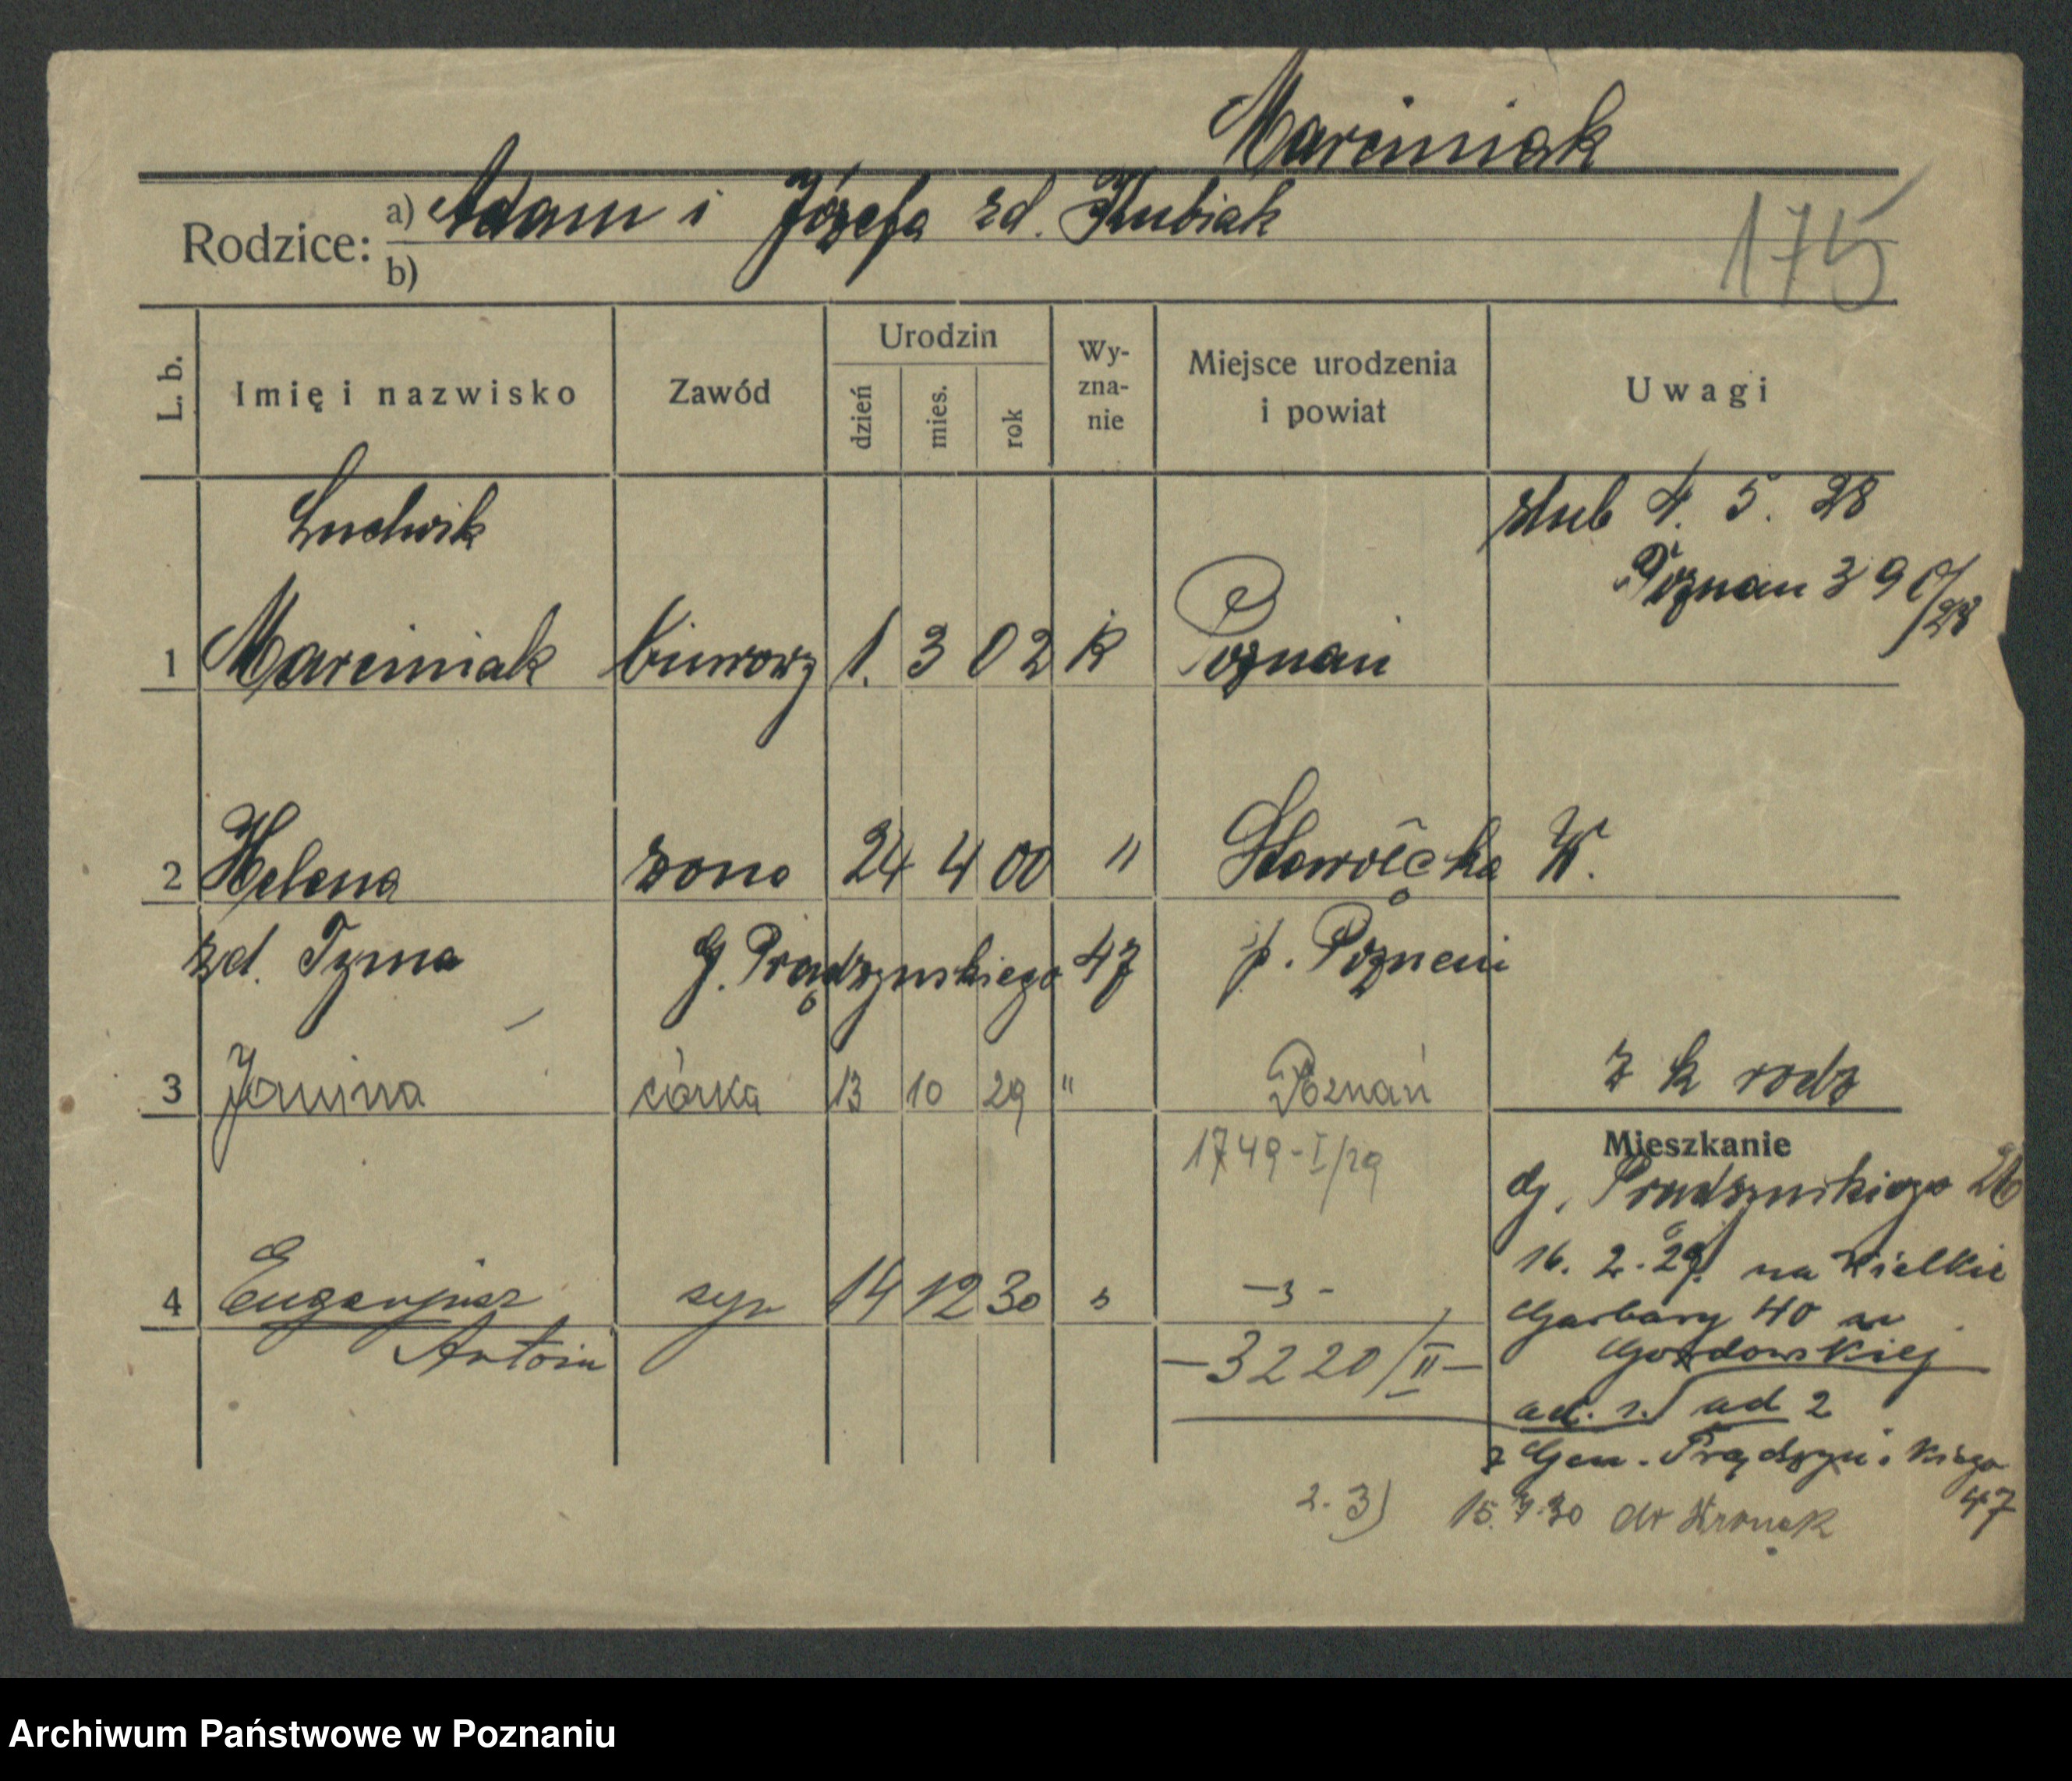 Marciniak
Rodzice: a) Adam i Józefa zd. Kubiak
b)
175
L. b. Imię i nazwisko Zawód Urodzin dzień mies. rok Wy-zna-nie Miejsce urodzenia i powiat Uwagi
Ludwik
ślub 4. 5. 28
Poznań 390/28
1 Marciniak biurowy 1. 3 02 k Poznań
2 Helena żona 24 4 00 " W.
zd. Tyma G. Prądzyńskiego 47 p. Poznań
3 Janina córka 13 10 29 " Poznań z k rodz
1749-I/29
Mieszkanie
dj. Prądzyńskiego
16. 2. 29. na Wielkie
4 Eugenjusz syn 14 12 30 " -"-
Garbary 40 u
Antoni -3220/II-
Gozdowskiej
ad. 1. ad 2
z Gen. Prądzyńskiego
47
2. 3) 15. 7. 30 do
Archiwum Państwowe w Poznaniu